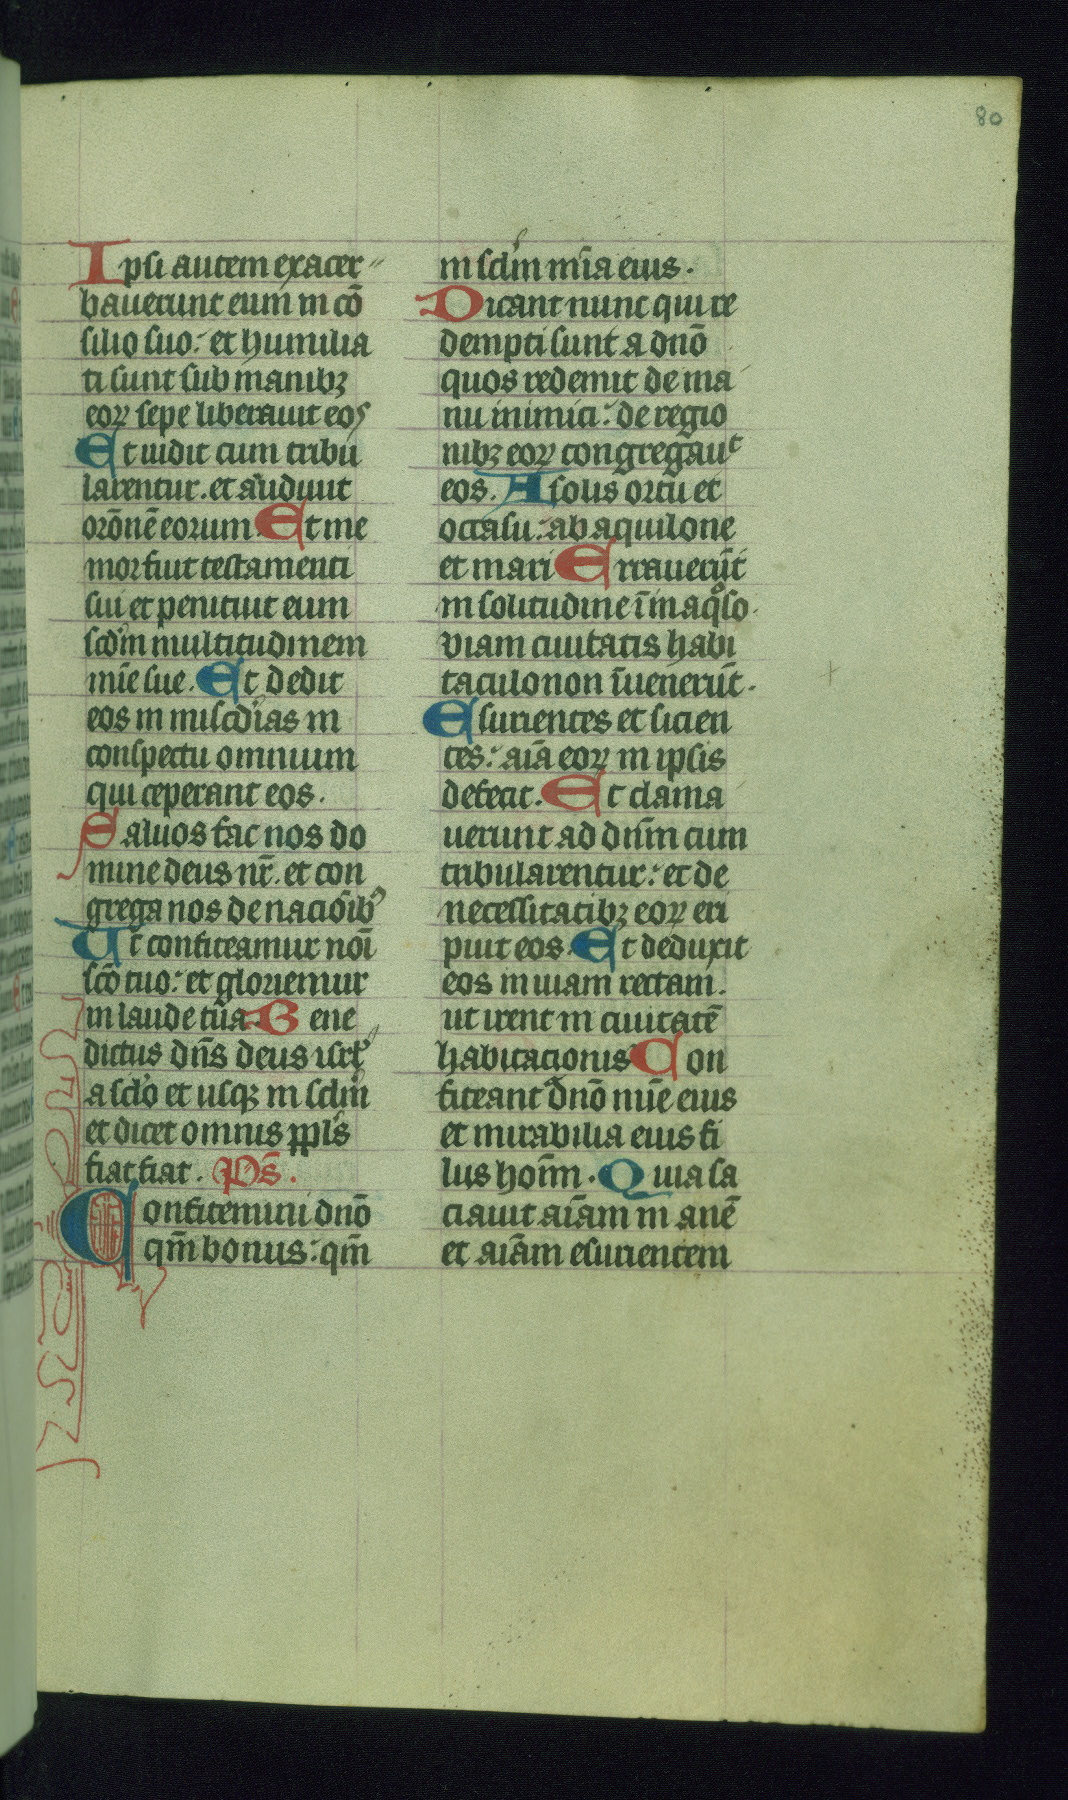 80
Ipsi autem exacer
bauerunt eum in cō
silio suo: et humilia
ti sunt sub manibꝫ
eoꝝ sepe liberauit eos
Et uidit cum tribu
larentur. et audiuit
orōnē eorum. Et me
mor fiut testamenti
sui et penituit eum
scdm̄ multitudinem
mīe sue. Et dedit
eos in miscdīas in
conspectu omnium
qui ceperant eos.
Saluos fac nos do
mine deus nr̄. et con
grega nos de naciōibꝰ
Ut confiteamur noī
scō tuo: et gloriemur
in laude tua. Bene
dictus dn̄s deus isrl̓
a sclo̓ et usqꝫ in sclm̓
et dicet omnis ppl̓s
fiat fiat. Ps̄.
Confitemini dnō
qm̄ bonus: qm̄
in sclm̓ mīa eius.
Dicant nunc qui re
dempti sunt a dnō
quos redemit de ma
nu inimici: de regio
nibꝫ eoꝝ congregauͭ
eos. A solis ortu et
occasu: ab aquilone
et mari Errauerūt
in solitudine ī inaqͦso
viam ciuitatis habi
taculo non īuenerūt.
Esurientes et sicien
tes: aīa eoꝝ in ipsis
defecit. Et clama
uerunt ad dnm̄ cum
tribularentur: et de
necessitatibꝫ eoꝝ eri
puit eos. Et deduxit
eos in uiam rectam.
ut irent in ciuitatē
habitacionis Con
fiteant̓ dnō mīe eius
et mirabilia eius fi
lijs hoīm. Quia sa
ciauit aīam in anē
et aīam esurientem